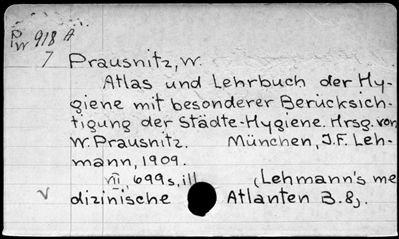 Pw 918 A
7 Prausnitz, W.
Atlas und Lehrbuch der Hy-
giene mit besonderer Berücksich-
tigung der Städte-Hygiene. Hrsg. von
W. Prausnitz. München, J.F. Leh-
mann, 1909.
VII, 699 s, ill (Lehmann's me
dizinische Atlanten B. 8).